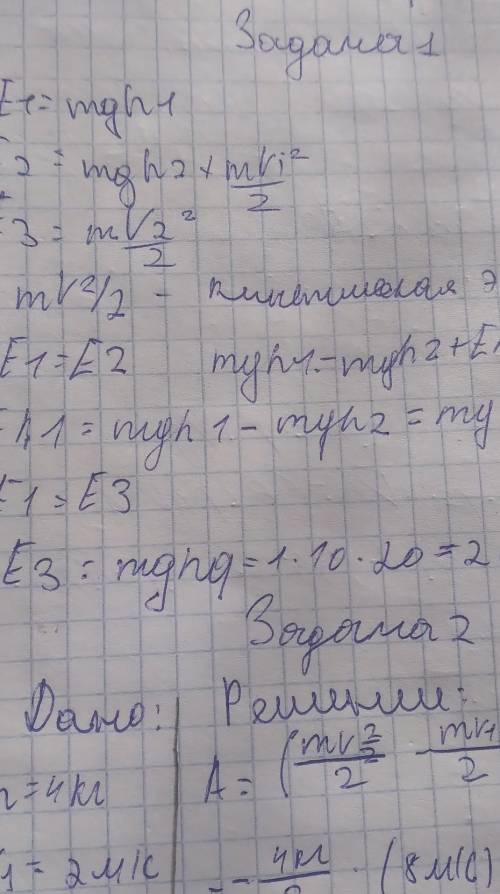 Задача 1
E1 = mgh1
2 = mgh2 + mV1²/2
3 = mV2²/2
mV²/2 - кинетическая э
E1 = E2 mgh1 = mgh2 + E
k1 = mgh1 - mgh2 = mg
E1 = E3
E3 = mgh9 = 1 · 10 · 20 = 2
Задача 2
Дано: Решение:
= 4 кг A = (mV2²/2 - mV1/2
1 = 2 м/с = - 4 кг · (8 м/с)